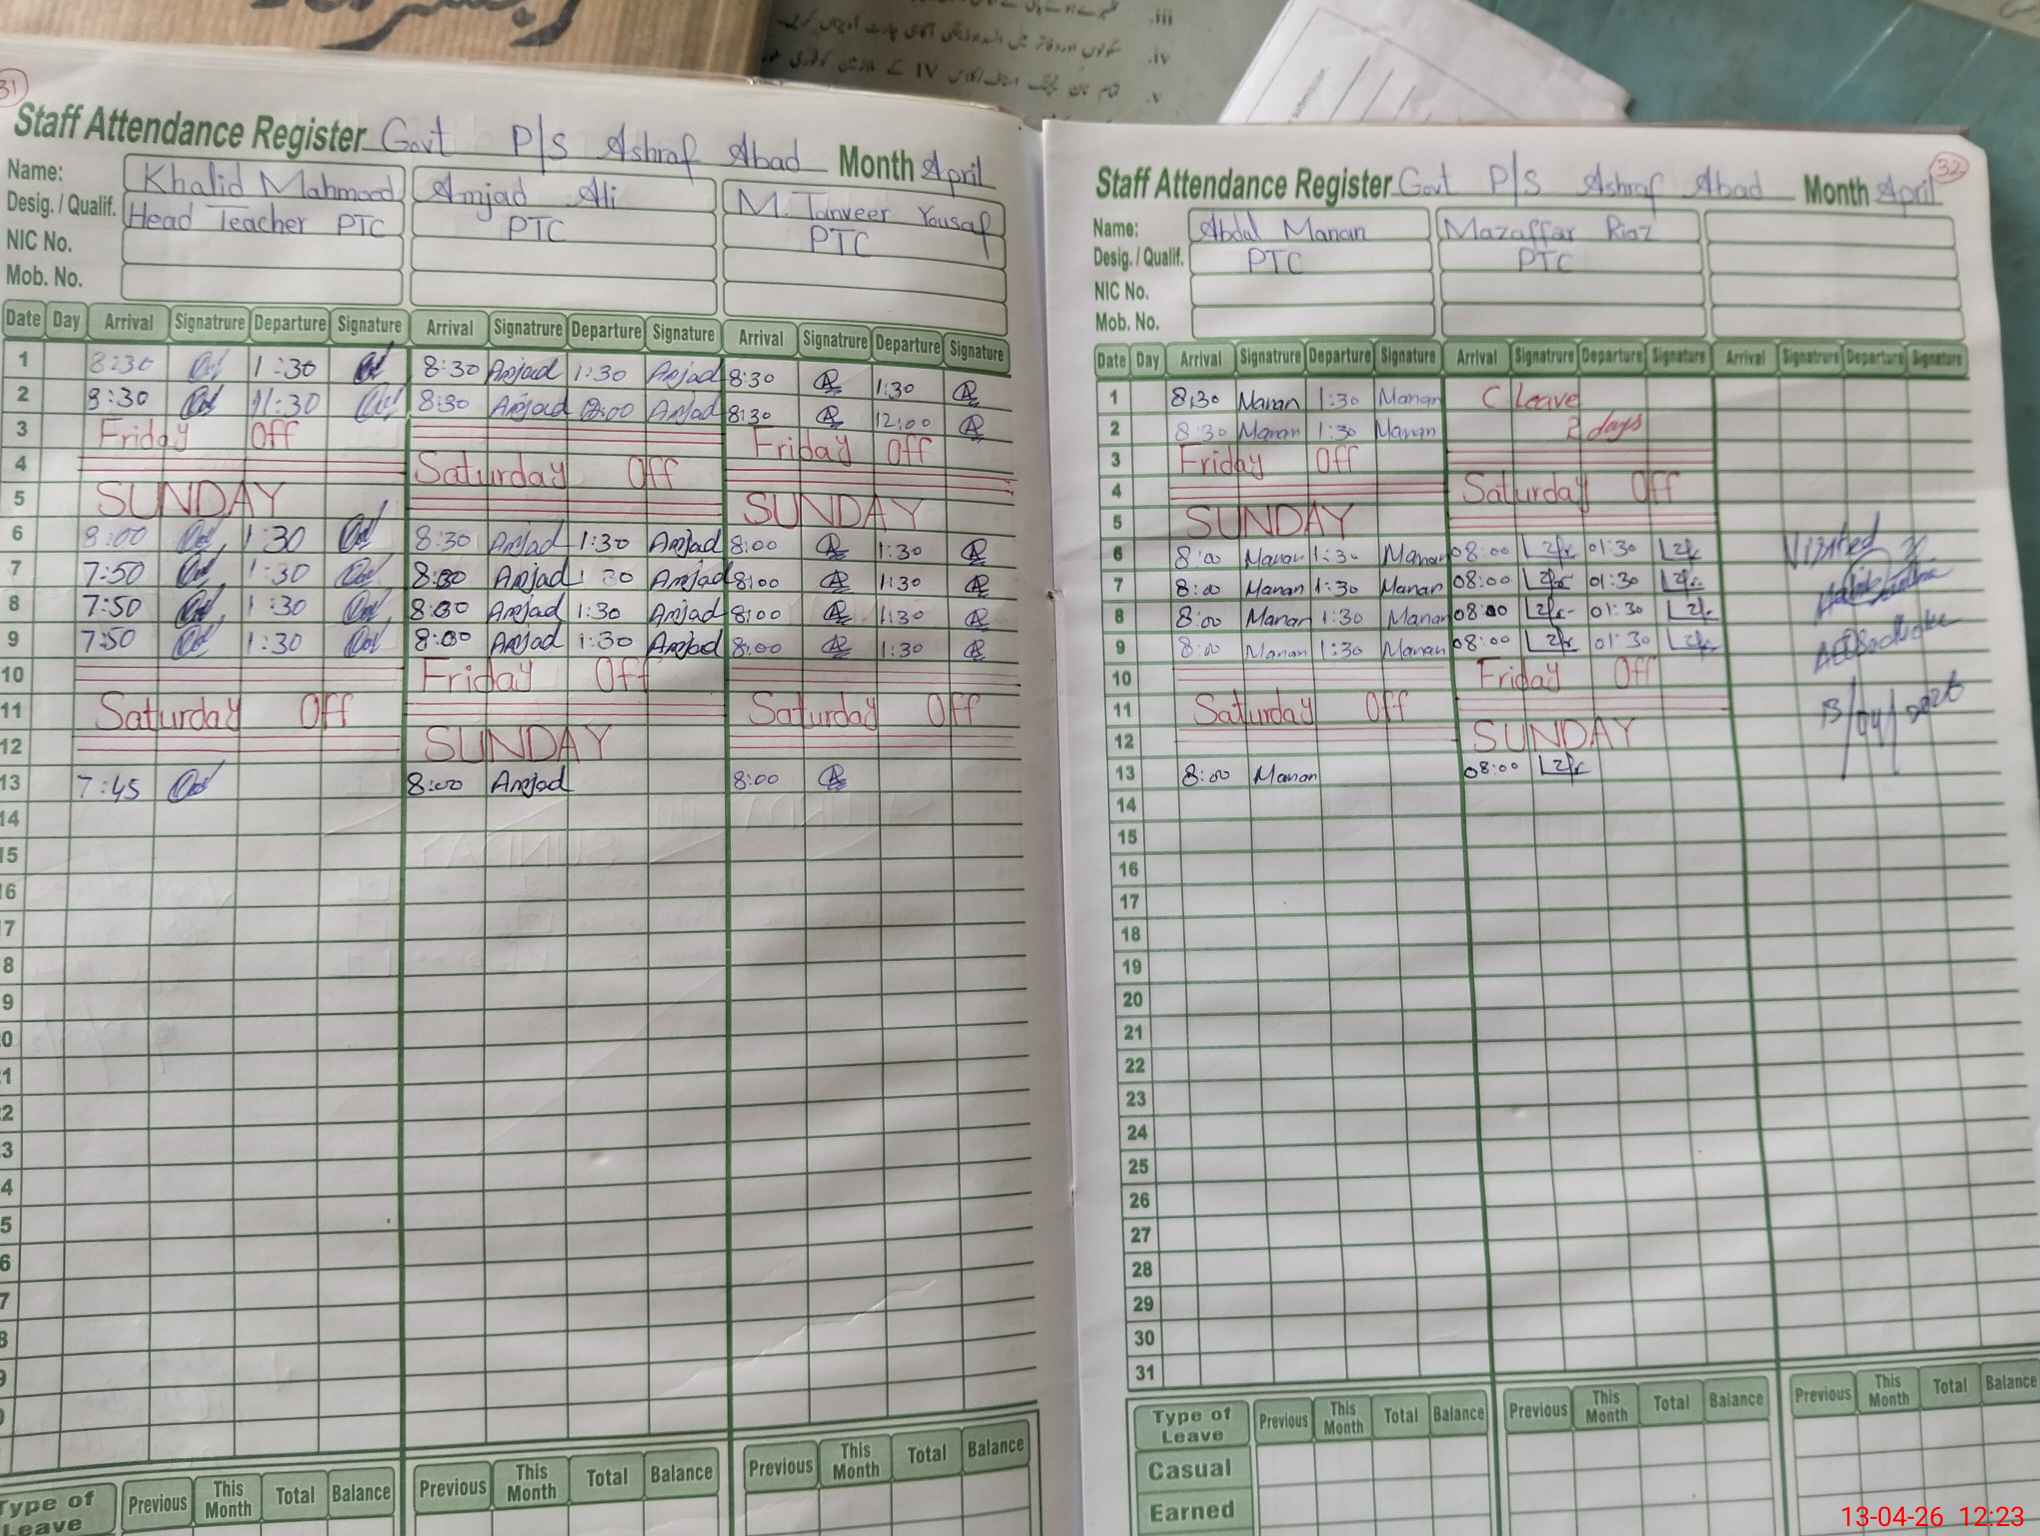 31
Staff Attendance Register Govt P/S Ashraf Abad Month April
Name: Khalid Mahmood Amjad Ali M. Tanveer Yousaf
Desig. / Qualif. Head Teacher PTC PTC PTC
NIC No.
Mob. No.
Date Day Arrival Signatrure Departure Signature Arrival Signatrure Departure Signature Arrival Signatrure Departure Signature
1 8:30 1:30 8:30 Amjad 1:30 Amjad 8:30 1:30
2 8:30 8:30 Amjad Amjad 8:30 12:00
3 Friday Off Friday Off
4 Saturday Off
5 SUNDAY SUNDAY
6 8:00 1:30 8:30 Amjad 1:30 Amjad 8:00 1:30
7 7:50 1:30 Amjad 1 30 Amjad 8:00 1:30
8 7:50 1:30 Amjad 1:30 Amjad 8:00 1:30
9 7:50 1:30 8:00 Amjad 1:30 Amjad 8:00 1:30
10 Friday Off
11 Saturday Off Saturday Off
12 SUNDAY
13 7:45 8:00 Amjad 8:00
14
15
16
17
8
9
20
1
2
3
4
5
6
7
8
9
Type of Leave Previous This Month Total Balance Previous This Month Total Balance Previous This Month Total Balance
32
Staff Attendance Register Govt P/S Ashraf Abad Month April
Name: Abdul Manan Mazaffar Riaz
Desig. / Qualif. PTC PTC
NIC No.
Mob. No.
Date Day Arrival Signatrure Departure Signature Arrival Signatrure Departure Signature Arrival Signatrure Departure Signature
1 8:30 Manan 1:30 Manan C Leave
2 8:30 Manan 1:30 Manan 2 days
3 Friday Off
4 Saturday Off
5 SUNDAY
6 8:00 Manan 1:30 Manan 08:00 01:30
7 8:00 Manan 1:30 Manan 08:00 01:30
8 8:00 Manan 1:30 Manan 08:00 01:30
9 8:00 Manan 1:30 Manan 08:00 01:30
10 Friday Off
11 Saturday Off
12 SUNDAY
13 8:00 Manan 08:00
13/04/2026
14
15
16
17
18
19
20
21
22
23
24
25
26
27
28
29
30
31
Type of Leave Previous This Month Total Balance Previous This Month Total Balance Previous This Month Total Balance
Casual
Earned
13-04-26 12:23